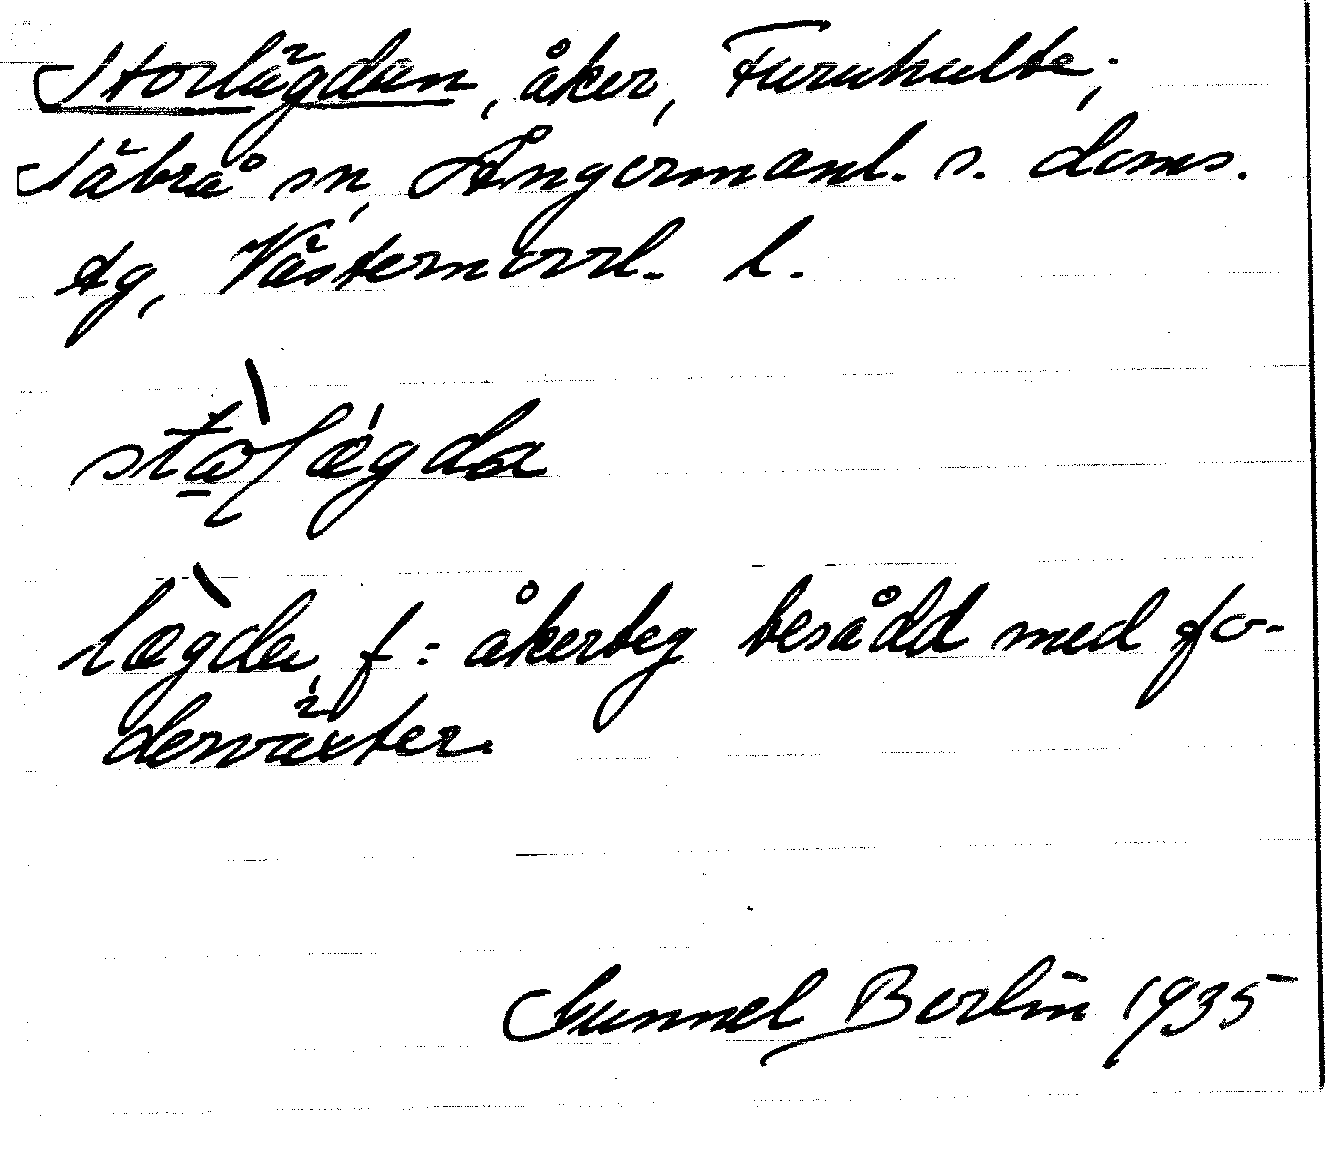 Storlägdan, åker, Furuhulte;
Säbrå sn, Ångermanl. s. doms.
tg, Västernorrl. l.
lægda, f: åkerteg besådd med fo-
derväxter.
Gunnel Berlin 1935